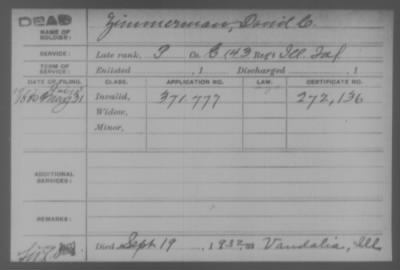 DEAD
NAME OF SOLDIER: Zimmerman, David C.
SERVICE: Late rank, P Co. C 143 Reg't Ill. Inf.
TERM OF SERVICE: Enlisted , 1 Discharged , 1
DATE OF FILING. CLASS. APPLICATION NO. LAW. CERTIFICATE NO.
1880 May 31 Invalid, 371.777 272,136
Widow,
Minor,
ADDITIONAL SERVICES:
REMARKS:
Died Sept 19 1932, at Vandalia, Ill